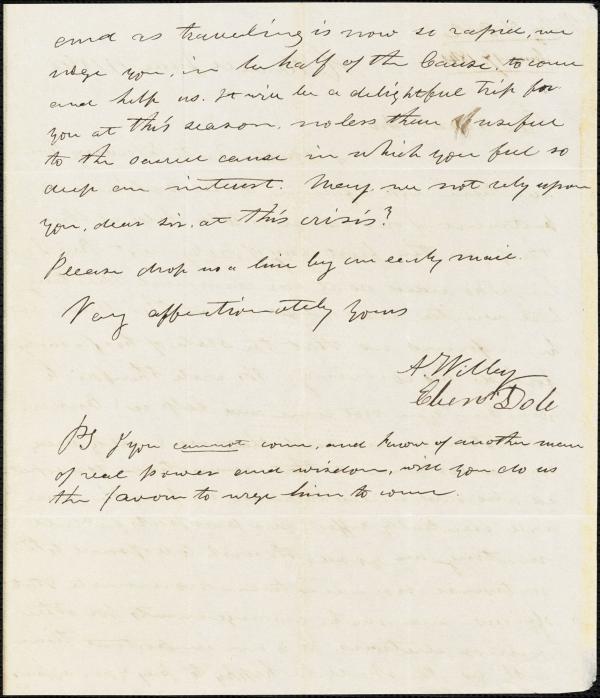 and as traveling is now so rapid, we
urge you, in behalf of the Cause, to come
and help us. It will be a delightful trip for
you at this season, no less than useful
to the sacred cause in which you feel so
deep an interest. May we not rely upon
you, dear sir, at this crisis?
Please drop us a line by an early mail.
Very affectionately yours
A. Willey
Ebenr Dole
PS If you cannot come, and know of another man
of real power and wisdom, will you do us
the favour to urge him to come.